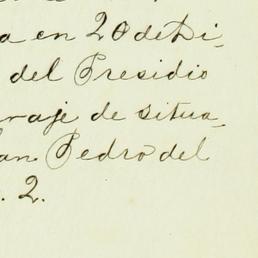 a en 20 de Di-
del Presidio
raje de situa-
an Pedro del
. 2.